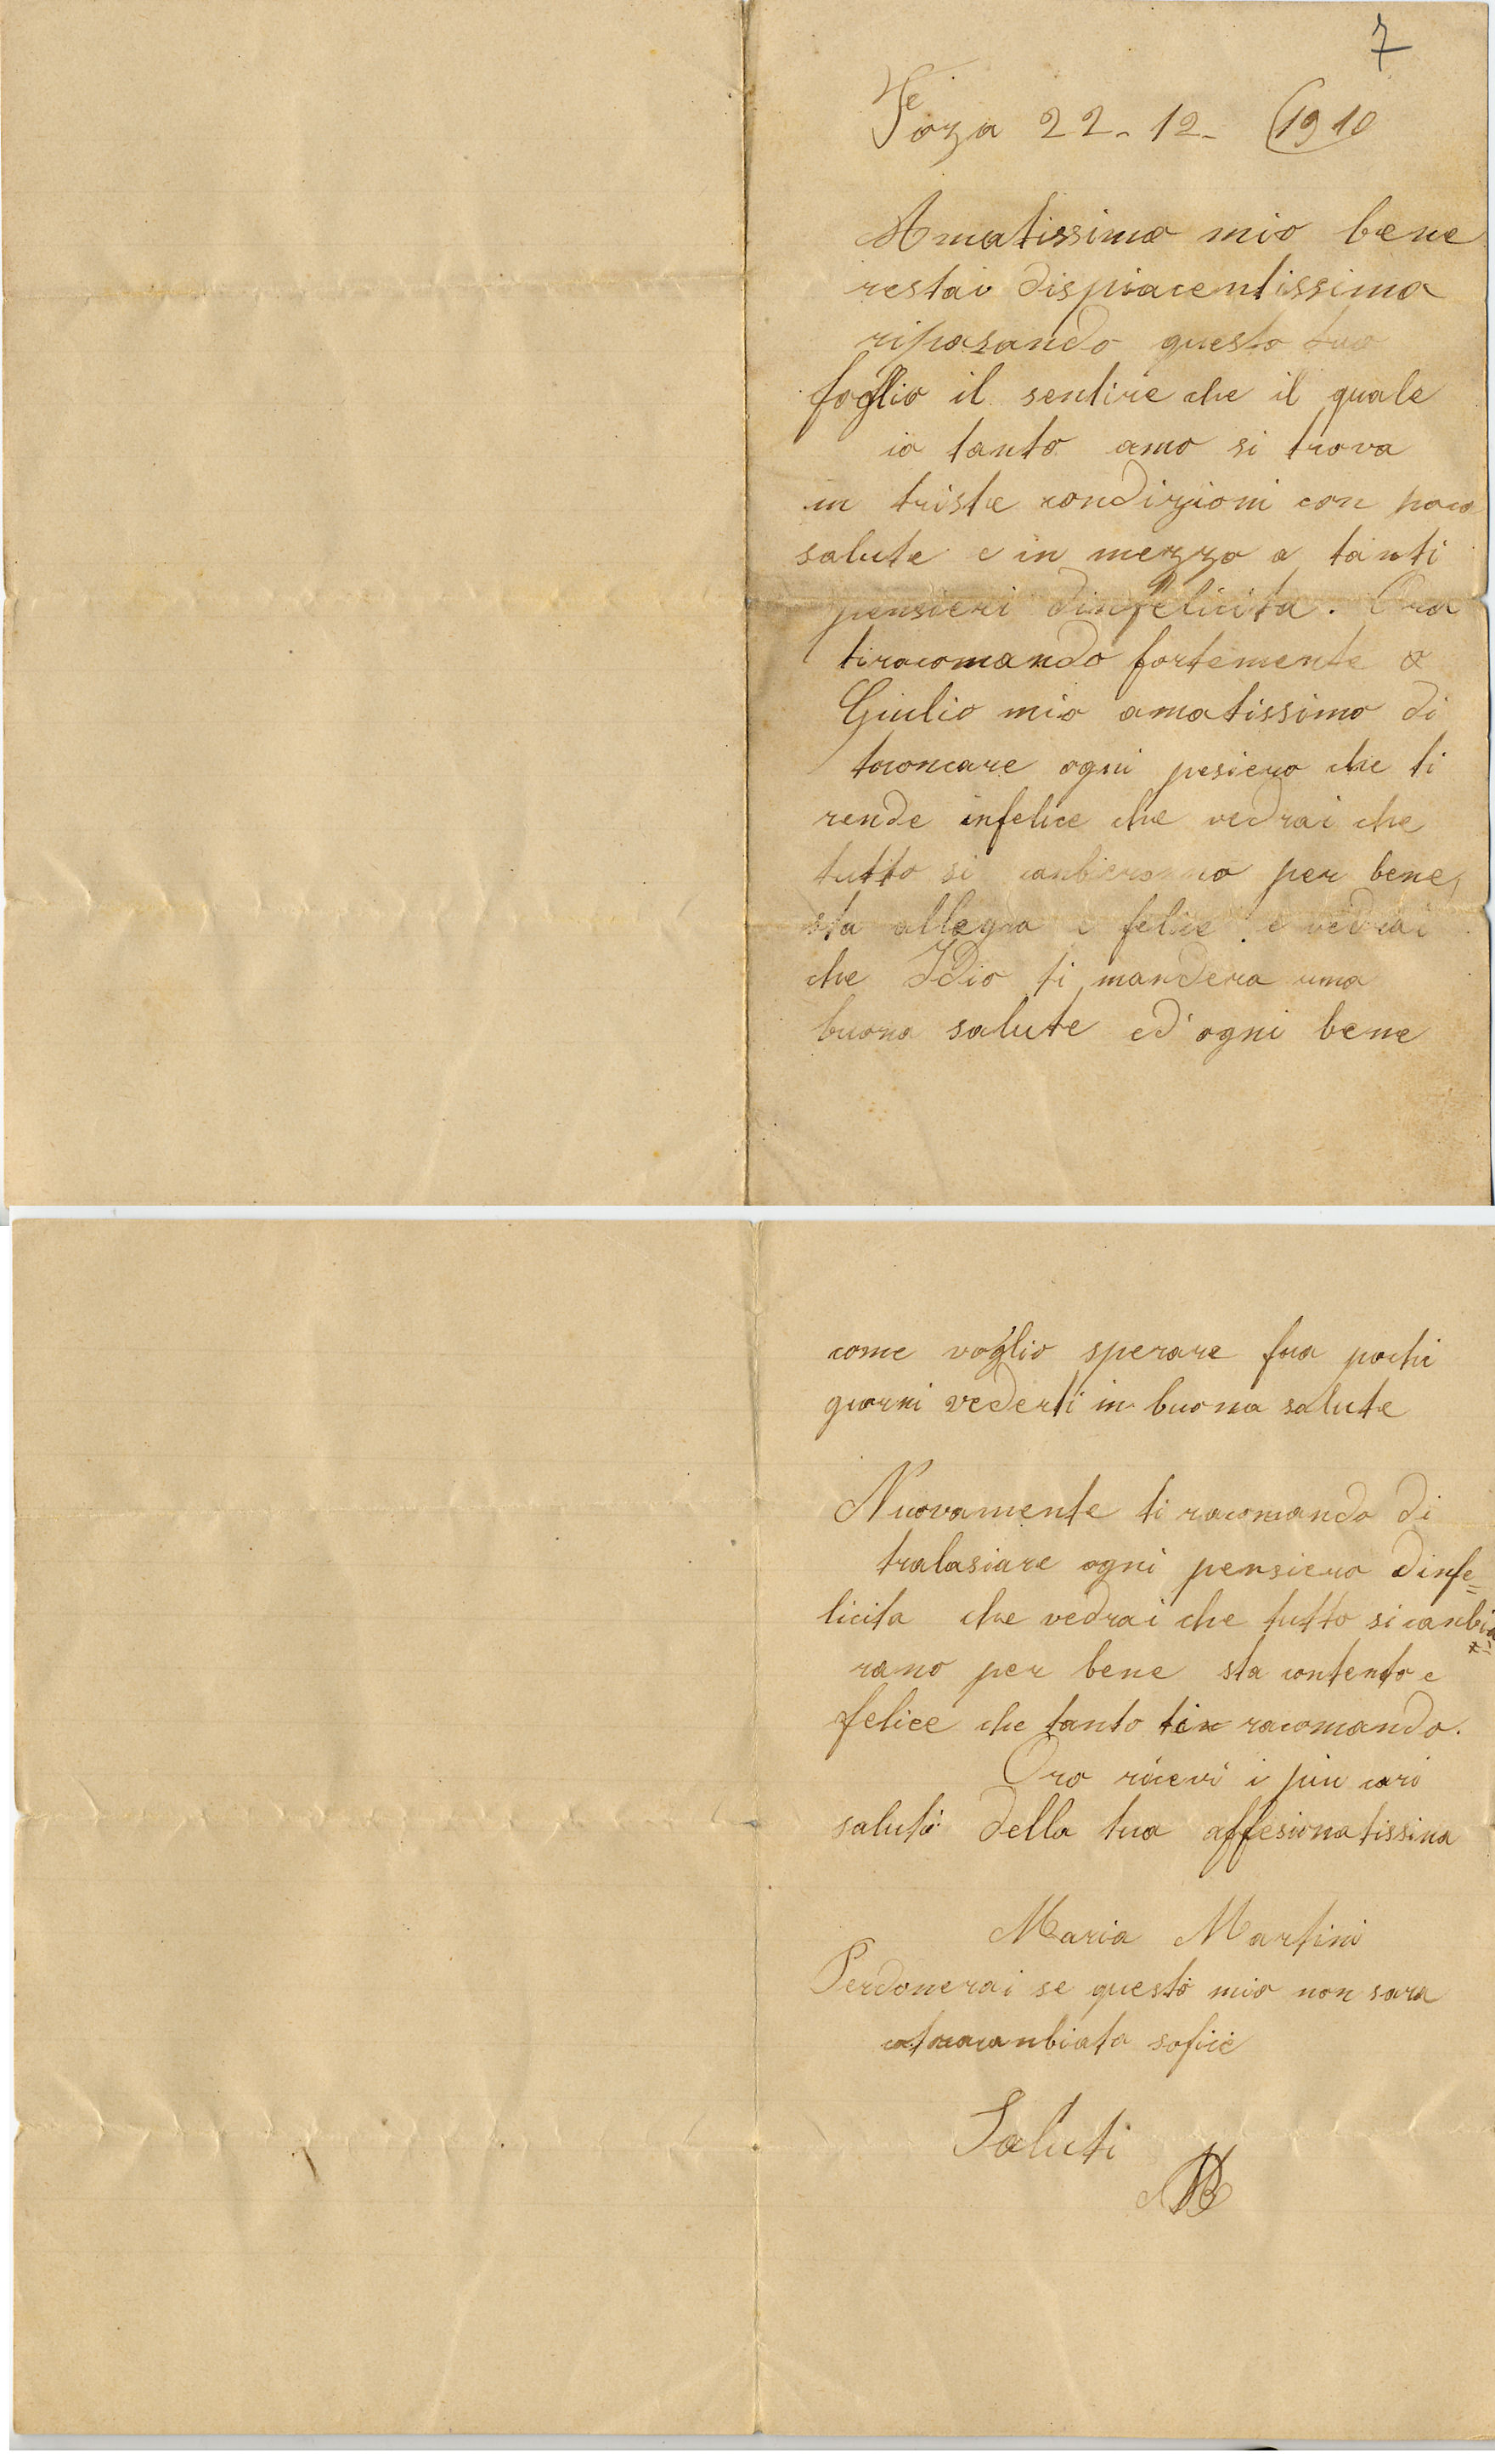 7
Foza 22-12-1910
Amatissimo mio bene
restai dispiacentissima
riposando questo tuo
foglio il sentire che il quale
io tanto amo si trova
in triste condizioni con poca
salute e in mezzo a tanti
pensieri dinfelicita. Ora
tiracomando fortemente o
Giulio mio amatissimo di
troncare ogni pesiero che ti
rende infelice che vedrai che
tutto si per bene,
sta allegro e felice e vedrai
che Idio ti mandera una
buona salute ed ogni bene
come voglio sperare fra pochi
giorni vederti in buona salute
Nuovamente ti racomando di
tralasiare ogni pensiero dinfe=
licita che vedrai che tutto si canbia
rano per bene sta contento e
felice che tanto racomando.
Ora ricevi i piu cari
saluti della tua affesionatissima
Maria Martini
Perdonerai se questo mio non sara
Saluti